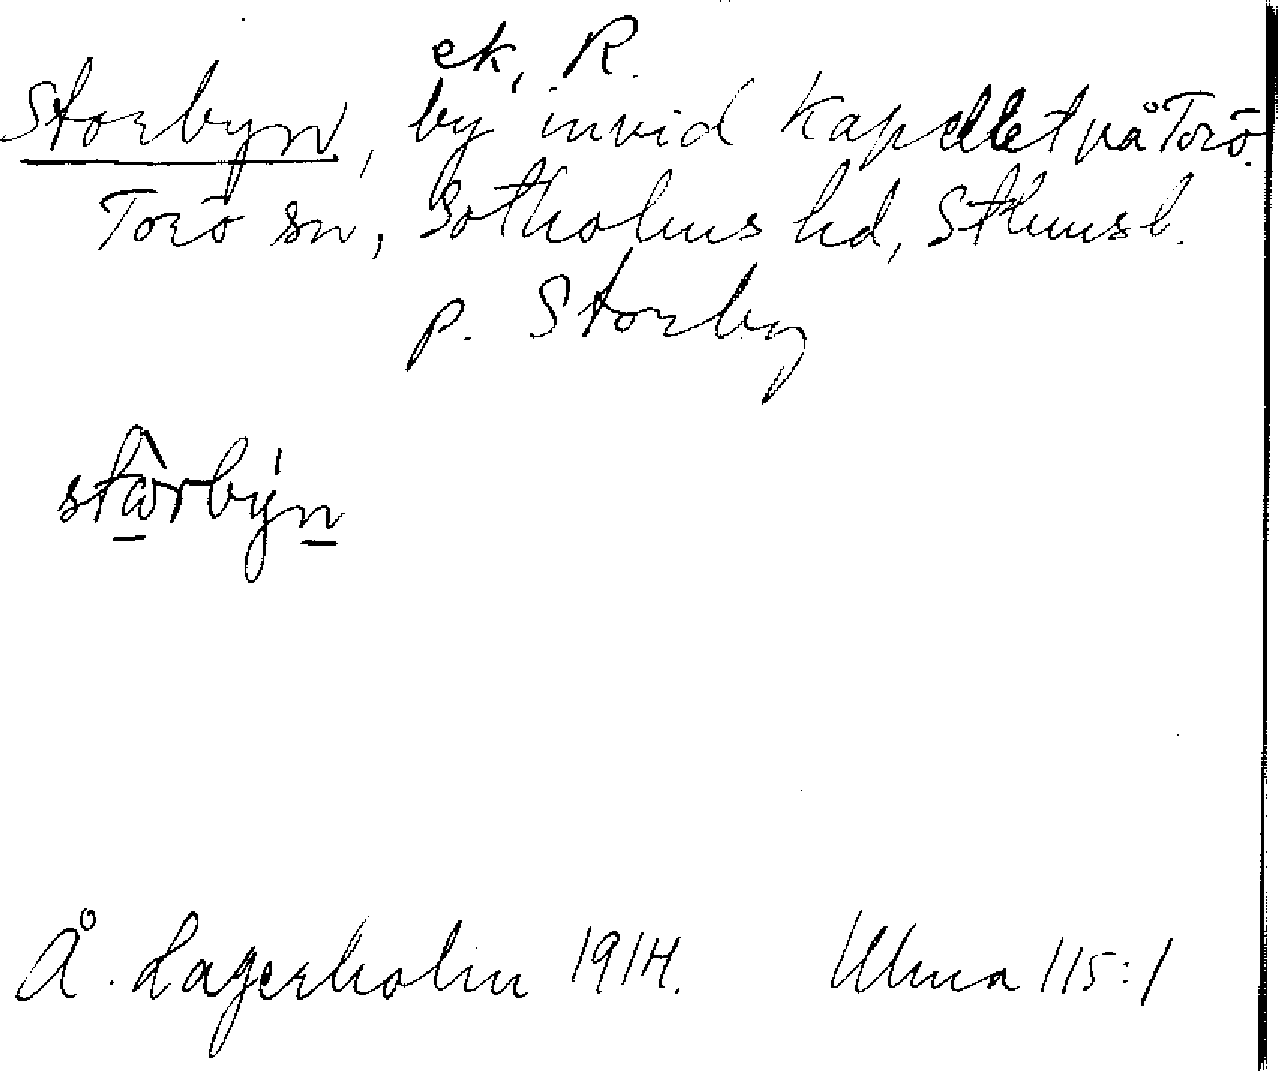 ek, R.
Storbyn, by invid Kapellet på Torö.
Torö sn, Sotholms hd, Sthmsl.
p. Storby
stơ̂rbýn
Å. Lagerholm 1914. Ulma 115:1